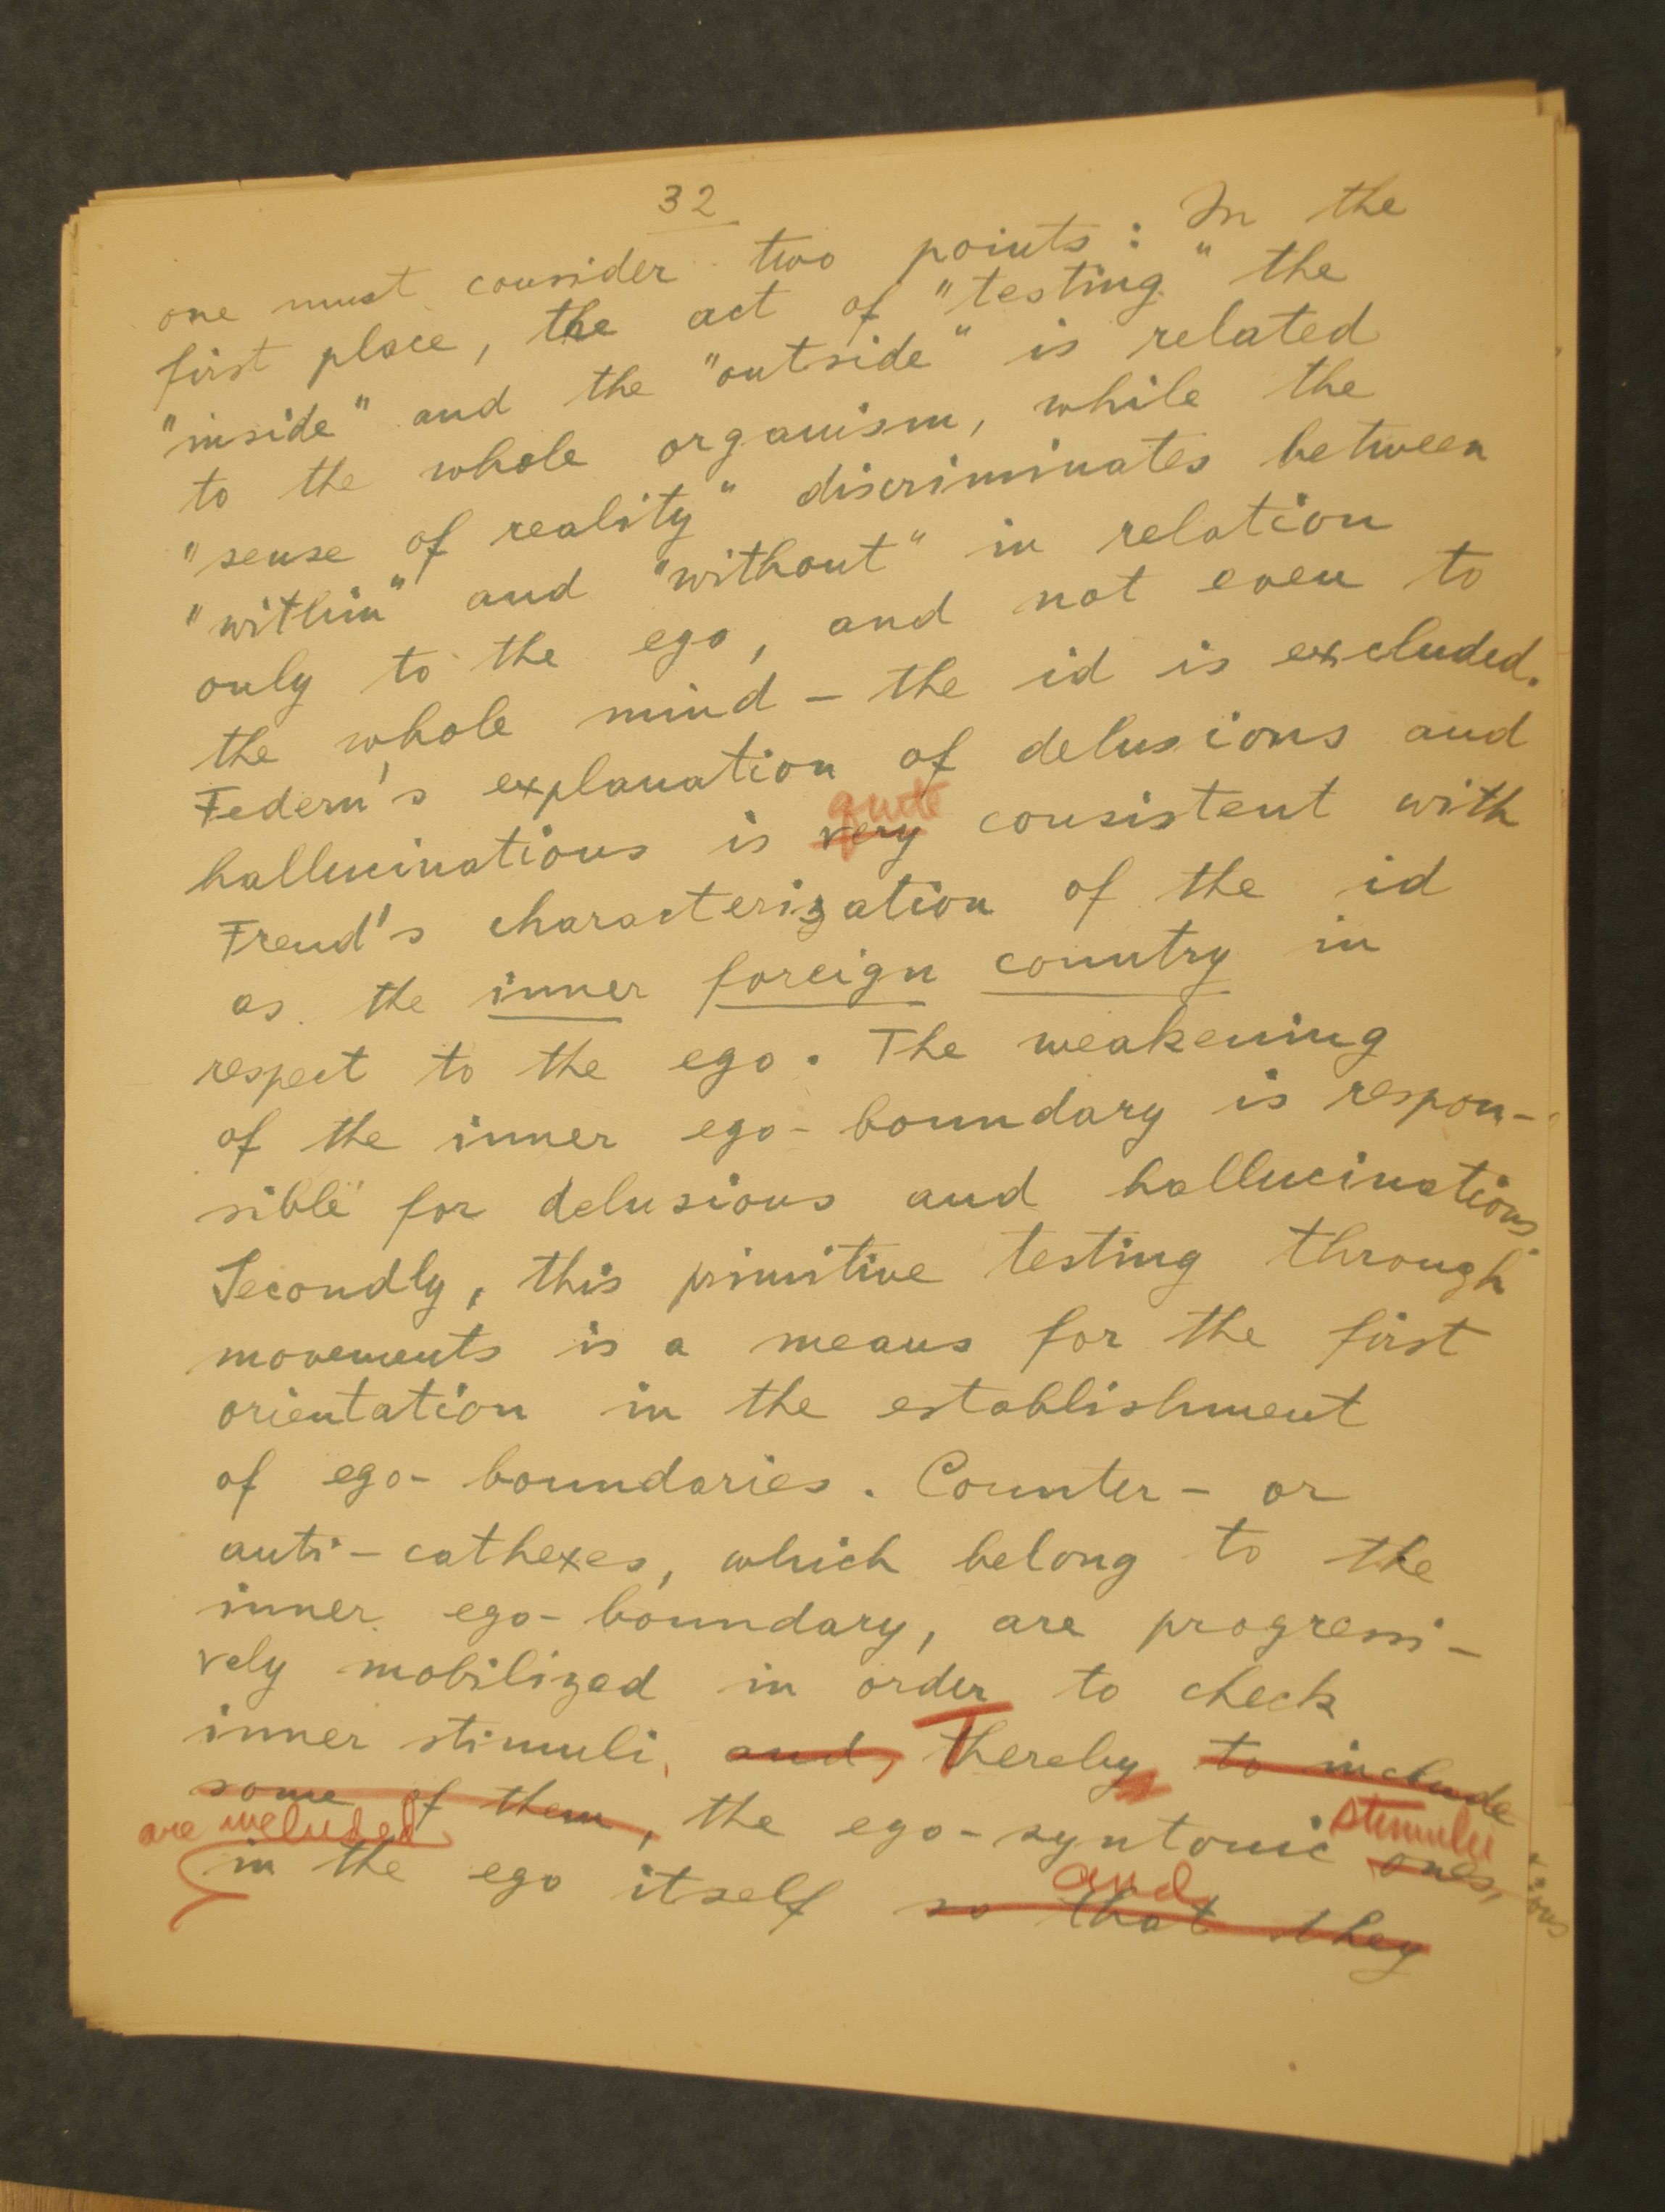 32
one must consider two points: In the
first place, the act of "testing" the
"inside" and the "outside" is related
to the whole organism, while the
"sense of reality" discriminates between
"within" and "without" in relation
only to the ego, and not even to
the whole mind - the id is excluded.
Federn's explanation of delusions and
quite
hallucinations is very consistent with
Freud's characterization of the id
as the inner foreign country in
respect to the ego. The weakening
of the inner ego-boundary is respon-
sible for delusions and hallucinations.
Secondly, this primitive testing through
movements is a means for the first
orientation in the establishment
of ego-boundaries. Counter- or
anti-cathexes, which belong to the
inner ego-boundary, are progressi-
vely mobilized in order to check
inner stimuli, and, Thereby to include
some of them, the ego-syntonic ones,
are included
stimuli
in the ego itself so that they
and